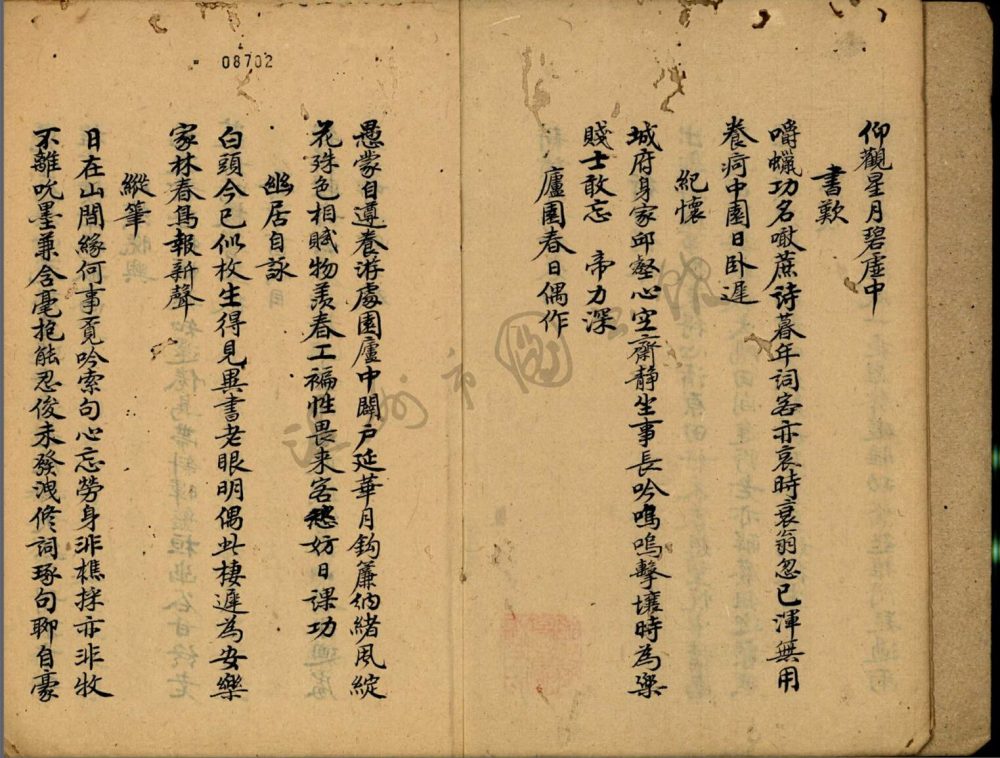 仰觀星月碧虛中
書歎
嚼蠟功名噉蔗詩暮年詞客亦哀時衰翁忽已渾無用
養疴中園日卧遲
紀懷
城府身家邱壑心空齋靜坐事長吟嗚嗚擊壤時為樂
賤士敢忘 帝力深
廬園春日偶作
08702
愚蒙自遵養游處園廬中闢戶延華月鈎簾納緒風綻
花殊色相賦物羨春工褊性畏来客愁妨日課功
幽居自詠
白頭今已似枚生得見異書老眼明偶此棲遲為安樂
家林春鳥報新聲
縱筆
日在山間緣何事覓吟索句心忘勞身非樵採亦非牧
不離吮墨兼含毫抱能忍俊未發洩修詞琢句聊自豪
温州市圖